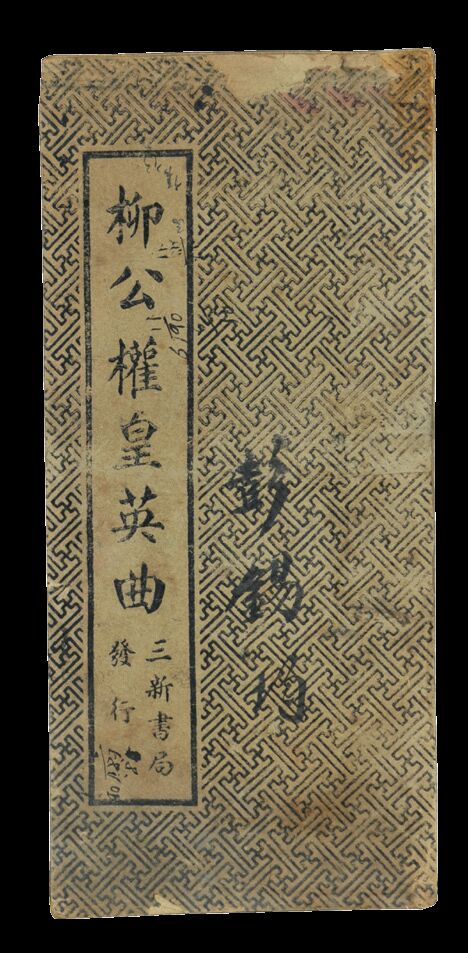 柳公權皇英曲
三新書局
發行
彭錫均